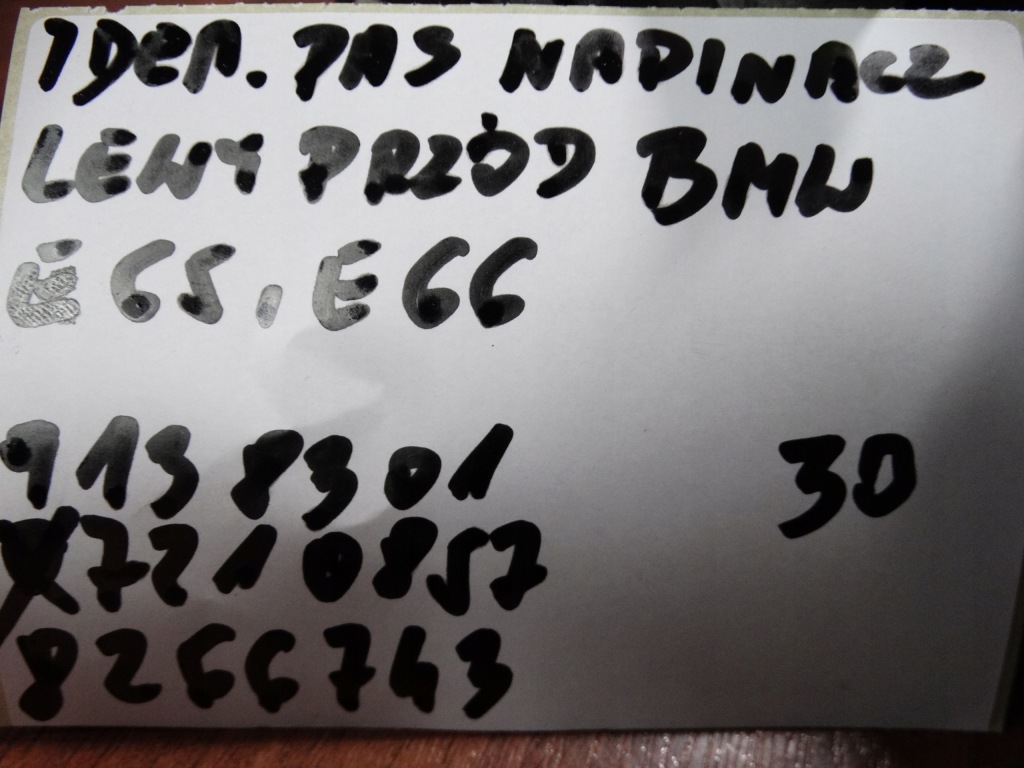 IDEA. PAS NAPINACZ
LEWY PRZÓD BMW
E65, E66
9138301 30
7210857
8266743